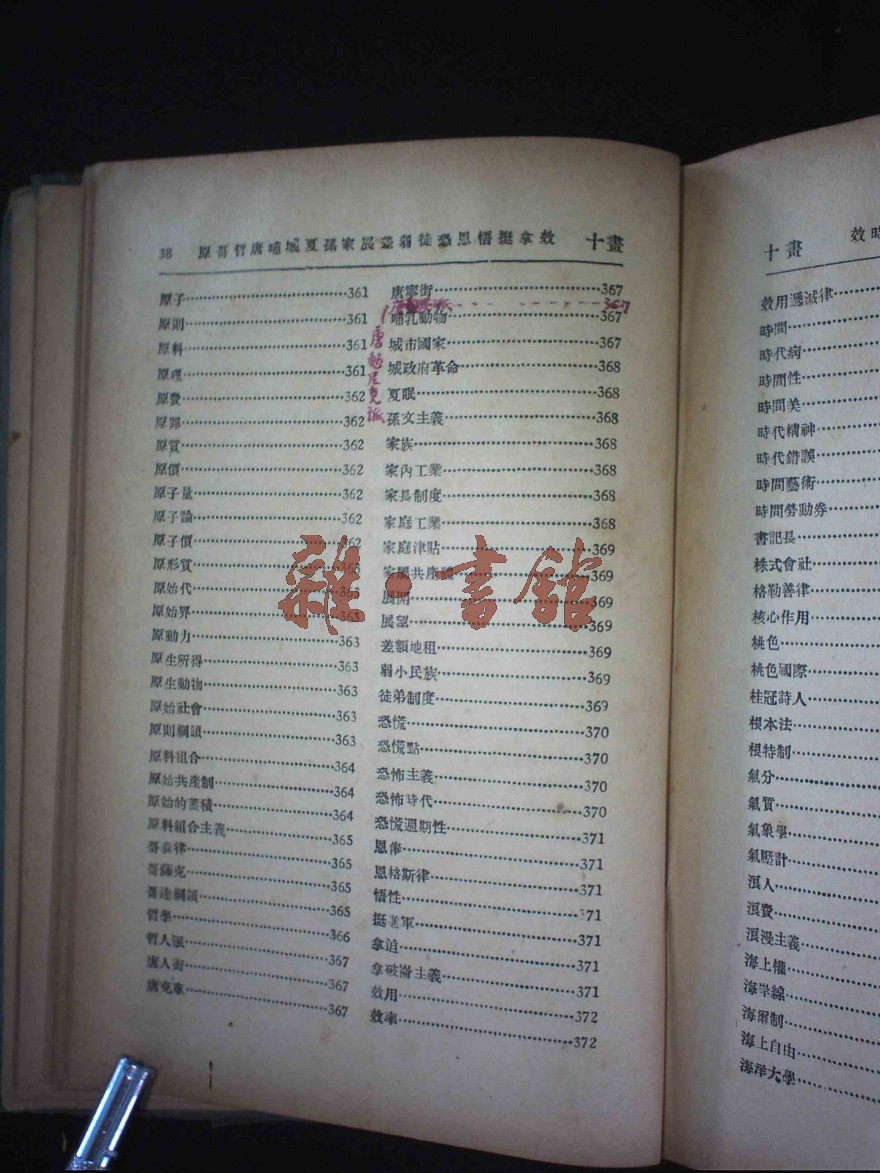 38 原哥哲唐哺城夏孫家展差弱徒恐恩悟挺拿效 十畫
原子 361
原則 361
原料 361
原理 361
原費 362
原罪 362
原質 362
原價 362
原子量 362
原子論 362
原子價 362
原形質 363
原始代 363
原始界 363
原動力 363
原生所得 363
原生動物 363
原始社會 363
原則綱領 363
原料組合 364
原始共產制 364
原始的蓄積 364
原料組合主義 365
哥泰律 365
哥薩克 365
哥達綱領 365
哲學 366
哲人派 367
唐人街 367
唐克車 367
唐寧街 367
367
唐勉尼克派
哺乳動物 367
城市國家 367
城政府革命 368
夏眠 368
孫文主義 368
家族 368
家內工業 368
家長制度 368
家庭工業 368
家庭津貼 369
家屬共產體 369
展開 369
展望 369
差額地租 369
弱小民族 369
徒弟制度 369
恐慌 370
恐慌點 370
恐怖主義 370
恐怖時代 370
恐慌週期性 371
恩俸 371
恩格斯律 371
悟性 371
挺進軍 371
拿迫 371
拿破崙主義 371
效用 372
效率 372
雜·書館
十畫 效時
效用遞減律
時間
時代病
時間性
時間美
時代精神
時代錯誤
時間藝術
時間勞動券
書記長
株式會社
格勒善律
核心作用
桃色
桃色國際
桂冠詩人
根本法
根特制
氣分
氣質
氣象學
氣壓計
浪人
浪費
浪漫主義
海上權
海岸線
海爾制
海上自由
海洋大學